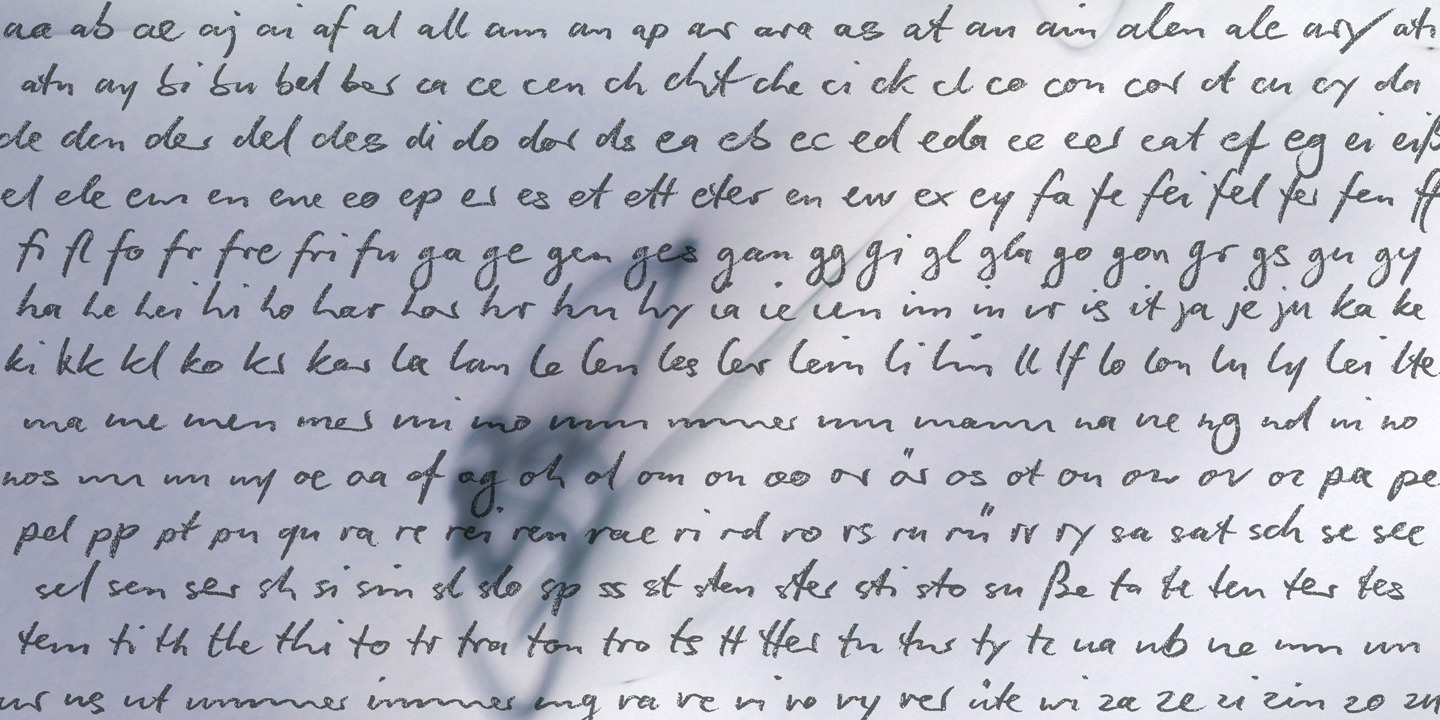 aa ab ae aj ai af al all am an ap ar ara as at au ain alen ale ary ath
atn ay bi bu bel ber ca ce cen ch cht che ci ck cl co con cor ct cu cy da
de den der del des di do dor ds ea eb ec ed eda ee eer eat ef eg ei eiß
el ele em en ene eo ep er es et ett eter eu ew ex ey fa fe fei fel fer fen ff
fi fl fo fr fre fri fu ga ge gen ges gan gg gi gl gla go gon gr gs gu gy
ha he hei hi ho har hr hu hy ia ie ien im in ir is it ja je ju ka ke
ki kk kl ko ks kar la lan le len les ler lein li lin ll lf lo lon lu ly lei lte
ma me men mer mi mo mm mmer mann na ne ng nd ni no
nos nn nu ny oe oa of og oh ol om on oo or är os ot ou ow ov oz pa pe
pel pp pt pu qu ra re rei ren rae ri rd ro rs ru rü rr ry sa sat sch se see
sel sen ser sh si sin sl slo sp ss st sten ster sti sto su ße ta te ten ter tes
tem ti th the thi to tr tra ton tro ts tt tter tu tur ty tz ua ub ue um un
ur us ut ummer immer ung va ve vi vo vy ver üte wi za ze zi zin zo zu